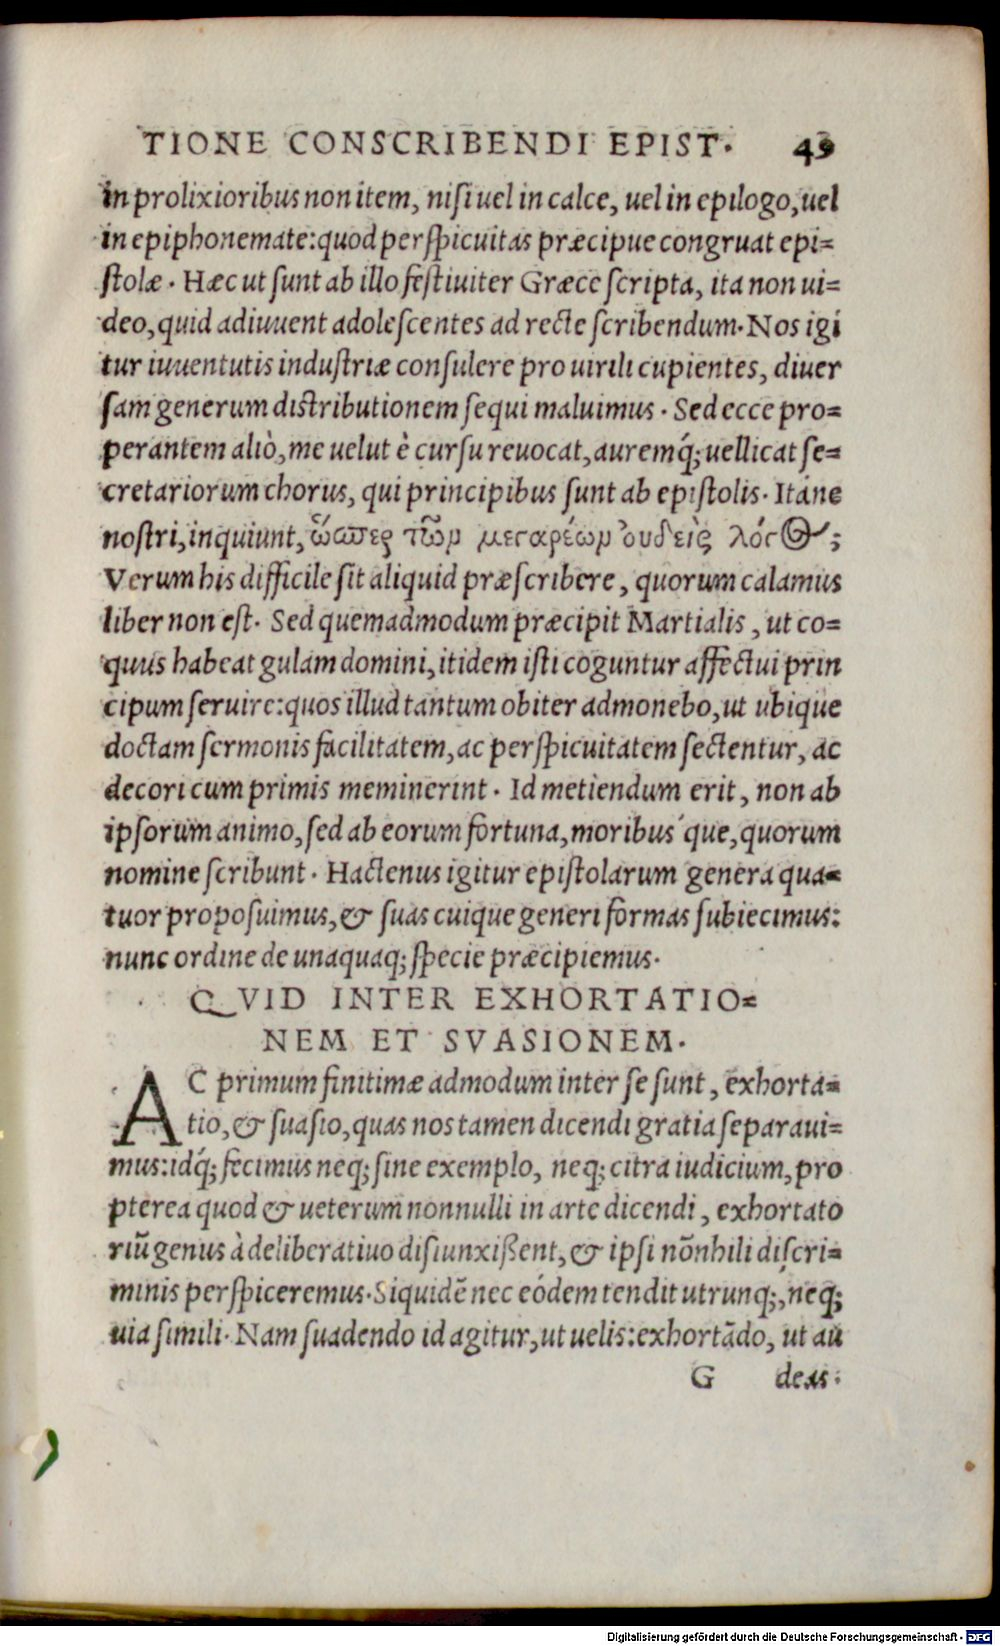 TIONE CONSCRIBENDI EPIST. 49
in prolixioribus non item, niſi uel in calce, uel in epilogo, uel
in epiphonemate: quod perſpicuitas præcipue congruat epi=
ſtolæ. Hæc ut ſunt ab illo feſtiuiter Græce ſcripta, ita non ui=
deo, quid adiuuent adoleſcentes ad recte ſcribendum. Nos igi
tur iuuentutis induſtriæ conſulere pro uirili cupientes, diuer
ſam generum diſtributionem ſequi maluimus. Sed ecce pro=
perantem aliò, me uelut è curſu reuocat, auremq́; uellicat ſe=
cretariorum chorus, qui principibus ſunt ab epiſtolis. Itáne
noſtri, inquiunt, ὥσπερ τῶν μεγαρέων οὐδεὶς λόγος;
Verum his difficile ſit aliquid præſcribere, quorum calamus
liber non eſt. Sed quemadmodum præcipit Martialis, ut co=
quus habeat gulam domini, itidem iſti coguntur affectui prin
cipum ſeruire: quos illud tantum obiter admonebo, ut ubique
doctam ſermonis facilitatem, ac perſpicuitatem ſectentur, ac
decori cum primis meminerint. Id metiendum erit, non ab
ipſorum animo, ſed ab eorum fortuna, moribus´que, quorum
nomine ſcribunt. Hactenus igitur epiſtolarum genera qua=
tuor propoſuimus, & ſuas cuique generi formas ſubiecimus:
nunc ordine de unaquaq; ſpecie præcipiemus.
QVID INTER EXHORTATIO=
NEM ET SVASIONEM.
AC primum finitimæ admodum inter ſe ſunt, exhorta=
tio, & ſuaſio, quas nos tamen dicendi gratia ſeparaui=
mus: idq́; fecimus neq; ſine exemplo, neq; citra iudicium, pro
pterea quod & ueterum nonnulli in arte dicendi, exhortato
riũ genus à deliberatiuo diſiunxißent, & ipſi nõnihili diſcri=
minis perſpiceremus. Siquidẽ nec eódem tendit utrunq;, neq;
uia ſimili. Nam ſuadendo id agitur, ut uelis: exhortãdo, ut au
G deas:
Digitalisierung gefördert durch die Deutsche Forschungsgemeinschaft - DFG